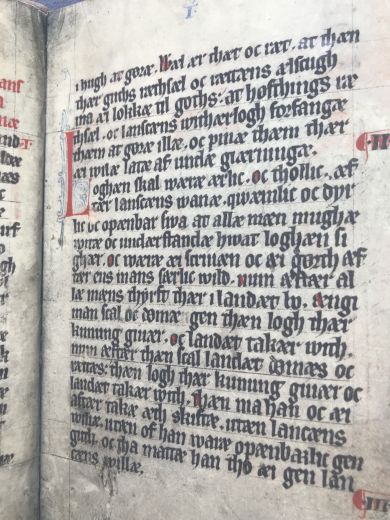 I
i hugh at gøræ. Wal ær thæt oc ræt. at thæn
thær guths ræthsel oc rættens ælscugh
ma æi lokkæ til goths. at hofthings ræ
thsæl. oc lanscens witherlogh forfangæ
thæm at gøræ illæ. oc pinæ thæm thær
æi wilæ latæ af undæ giærningæ.
Loghæn skal wæræ ærlic. oc thollic. æf
tær lanscens wanæ. qwæmlic oc dyr
lic oc opænbar swa at allæ mæn mughæ
witæ oc undærstandæ hwat loghæn si
ghær. oc wæræ æi scriuæn oc æi gørth æf
tær ens mans særlic wild. num æftær al
læ mæns thyrft thær i landæt by. ængi
man scal oc dømæ gen thæn logh thær
kunung giuær. oc landæt takær with.
num æftær thæn scal landæt dømæs oc
rættæs. thæn logh thær kunung giuær oc
landæt takær with. thæn ma han oc æi
aftær takæ æth skiftæ. utæn lanscens
wiliæ. utæn of han wæræ opænbarlic gen
guth. oc tha mattæ han tho æi gen lan
scens willæ.
II
III